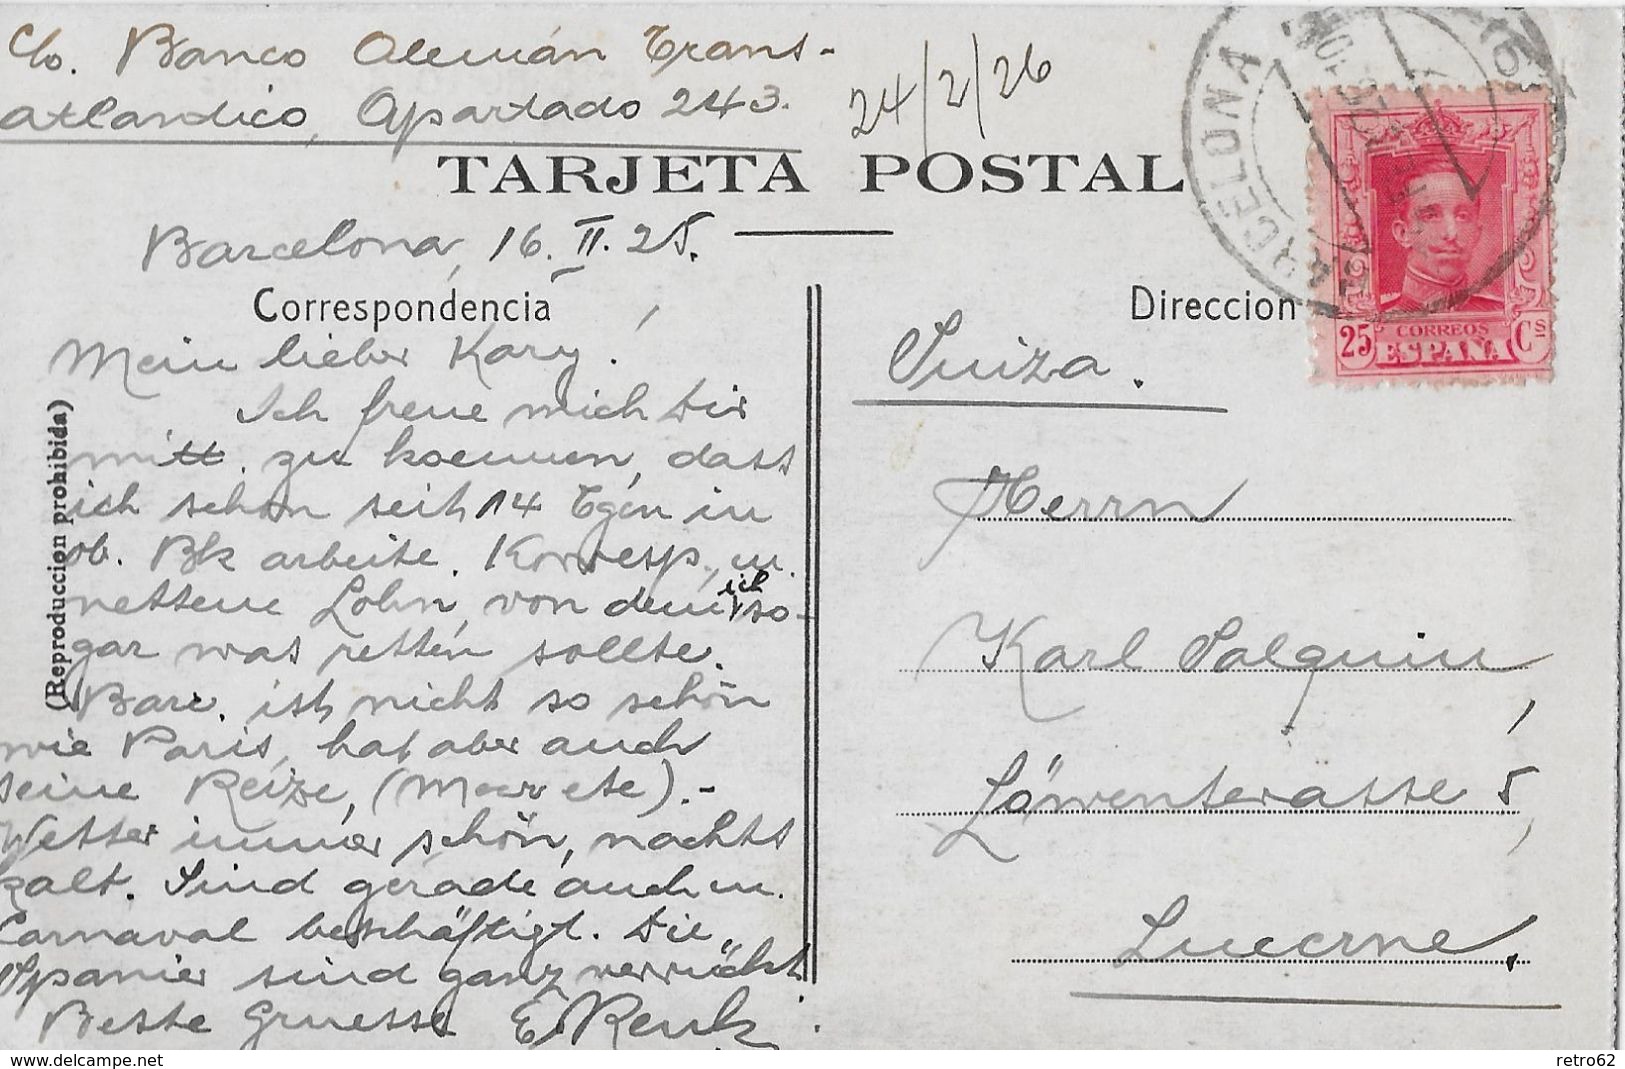 C/o. Banco Alemán Trans-
atlandico, Apartado 243.
24/2/26
TARJETA POSTAL
BARCELONA
Barcelona, 16. II. 25.
Correspondencia
Direccion
25 CORREOS Cs
ESPAÑA
Mein lieber Kary!
Ich freue mich Dir
mitt. zu koennen, dass
ich schon seit 14 Tgen in
ob. Bk arbeite. Korresp., u.
nettene Lohn, von dem ich so-
gar was retten sollte.
Barc. ist nicht so schön
wie Paris, hat aber auch
seine Reize, (Meer etc). -
Wetter immer schön, nachts
kalt. Sind gerade auch m.
Carnaval beschäftigt. Die
Spanier sind ganz verrückt
Beste Gruesse E. Renk.
(Reproduccion prohibida)
Suiza.
Herrn
Karl Salquin,
Löwenterasse 5,
Lucerne.
delcampe.net
retro62